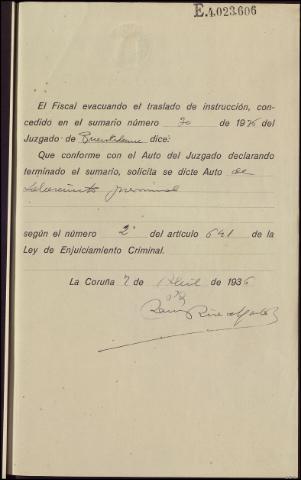 E.4.023.606
El Fiscal evacuando el traslado de instrucción, con-
cedido en el sumario número 70 de 1936 del
Juzgado de dice:
Que conforme con el Auto del Juzgado declarando
terminado el sumario, solicita se dicte Auto de
según el número 2º del artículo 641 de la
Ley de Enjuiciamiento Criminal.
La Coruña 7 de Abril de 1936